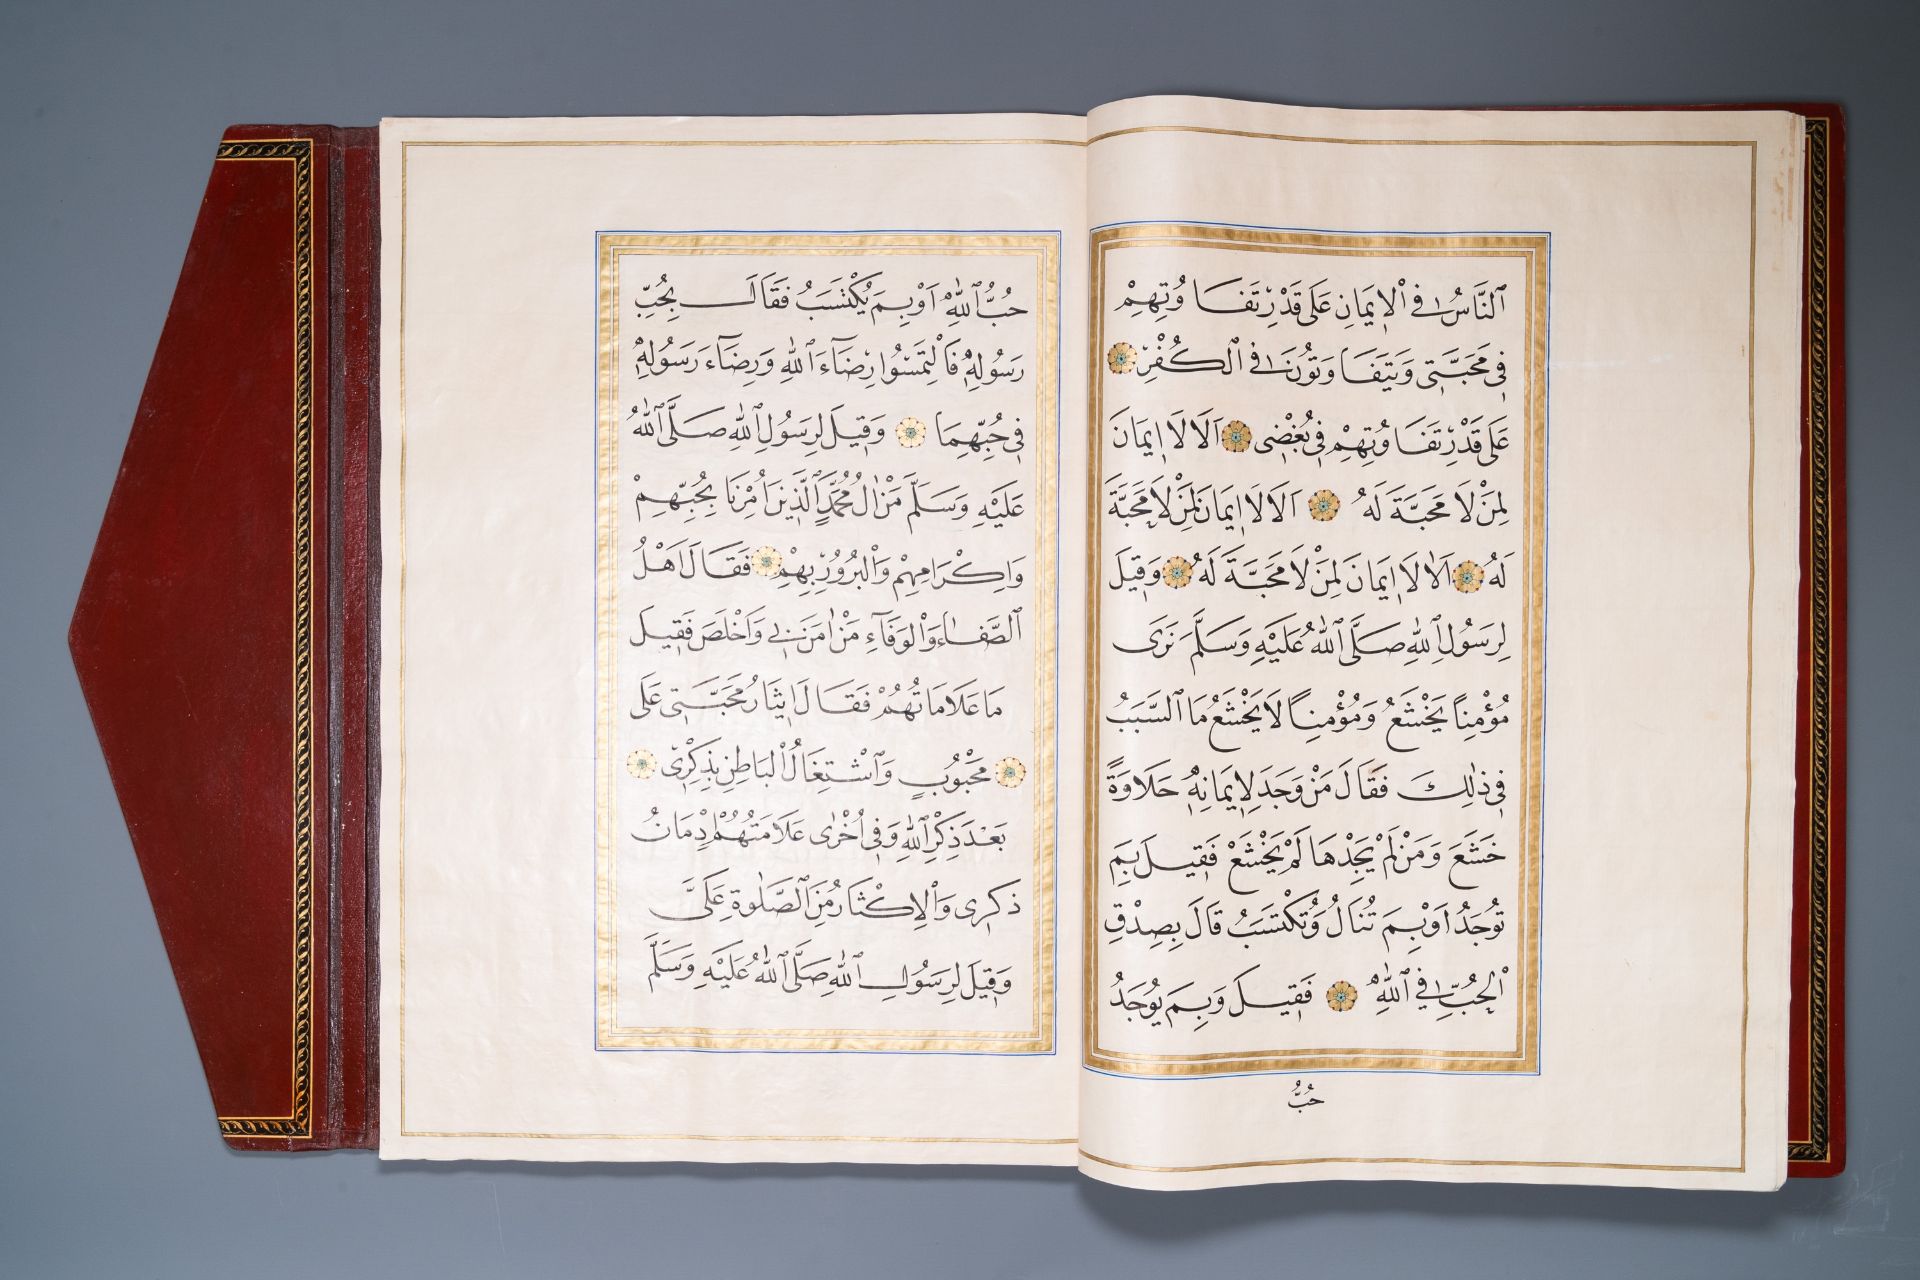 اَلنَّاسُ فِي الْاِيمَانِ عَلَى قَدْرِ تَفَاوُتِهِمْ
فِي مَحَبَّتِي وَيَتَفَاوَتُونَ فِي الْكُفْرِ
عَلَى قَدْرِ تَفَاوُتِهِمْ فِي بُغْضِي اَلَا لَا اِيمَانَ
لِمَنْ لَا مَحَبَّةَ لَهُ اَلَا لَا اِيمَانَ لِمَنْ لَا مَحَبَّةَ
لَهُ اَلَا لَا اِيمَانَ لِمَنْ لَا مَحَبَّةَ لَهُ وَقِيلَ
لِرَسُولِ اللّٰهِ صَلَّى اللّٰهُ عَلَيْهِ وَسَلَّمَ نَرَى
مُؤْمِنًا يَخْشَعُ وَمُؤْمِنًا لَا يَخْشَعُ مَا السَّبَبُ
فِي ذٰلِكَ فَقَالَ مَنْ وَجَدَ لِاِيمَانِهِ حَلَاوَةً
خَشَعَ وَمَنْ لَمْ يَجِدْهَا لَمْ يَخْشَعْ فَقِيلَ بِمَ
تُوجَدُ اَوْ بِمَ تُنَالُ وَتُكْتَسَبُ قَالَ بِصِدْقِ
الْحُبِّ فِي اللّٰهِ فَقِيلَ وَبِمَ يُوجَدُ
حُبُّ
حُبُّ اللّٰهِ اَوْ بِمَ يُكْتَسَبُ فَقَالَ بِحُبِّ
رَسُولِهِ فَالْتَمِسُوا رِضَاءَ اللّٰهِ وَرِضَاءَ رَسُولِهِ
فِي حُبِّهِمَا وَقِيلَ لِرَسُولِ اللّٰهِ صَلَّى اللّٰهُ
عَلَيْهِ وَسَلَّمَ مَنْ اٰلُ مُحَمَّدٍ الَّذِينَ اُمِرْنَا بِحُبِّهِمْ
وَاِكْرَامِهِمْ وَالْبُرُورِ بِهِمْ فَقَالَ اَهْلُ
الصَّفَاءِ وَالْوَفَاءِ مَنْ اٰمَنَ بِي وَاَخْلَصَ فَقِيلَ
مَا عَلَامَاتُهُمْ فَقَالَ اِيثَارُ مَحَبَّتِي عَلَى
مَحْبُوبٍ وَاشْتِغَالُ الْبَاطِنِ بِذِكْرِي
بَعْدَ ذِكْرِ اللّٰهِ وَفِي اُخْرٰى عَلَامَتُهُمْ اِدْمَانُ
ذِكْرِي وَالْاِكْثَارُ مِنَ الصَّلٰوةِ عَلَيَّ
وَقِيلَ لِرَسُولِ اللّٰهِ صَلَّى اللّٰهُ عَلَيْهِ وَسَلَّمَ